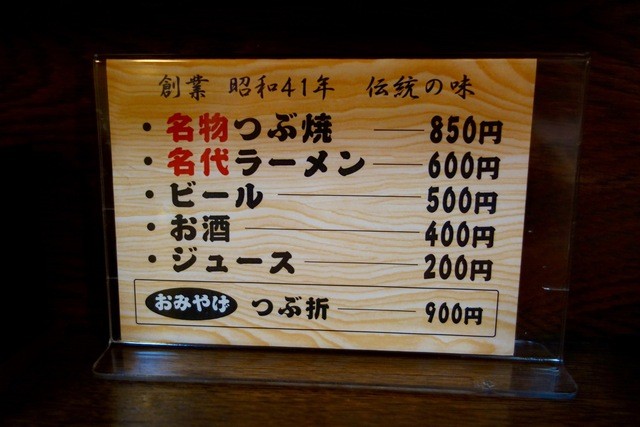 創業 昭和41年 伝統の味
・名物つぶ焼 850円
・名代ラーメン 600円
・ビール 500円
・お酒 400円
・ジュース 200円
おみやげ つぶ折 900円